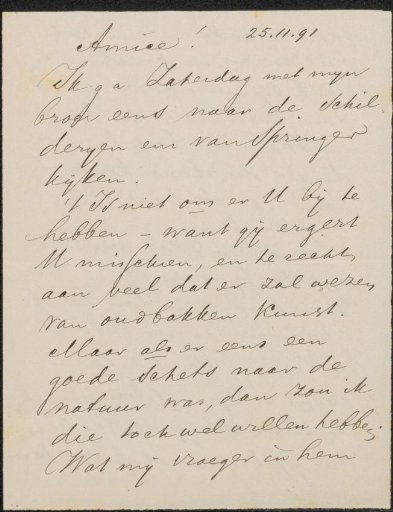 Amice! 25.11.91
Ik ga Zaterdag met mijn
broer eens naar de Schil
deryen en van Springer
kijken.
't Is niet om er U bij te
hebben – want gij ergert
U misschien, en te recht
aan veel dat er zal wezen
van oudbakken kunst.
Maar als er eens een
goede Schets naar de
natuur was, dan zou ik
die toch wel willen hebben,
Wat mij vroeger in hem